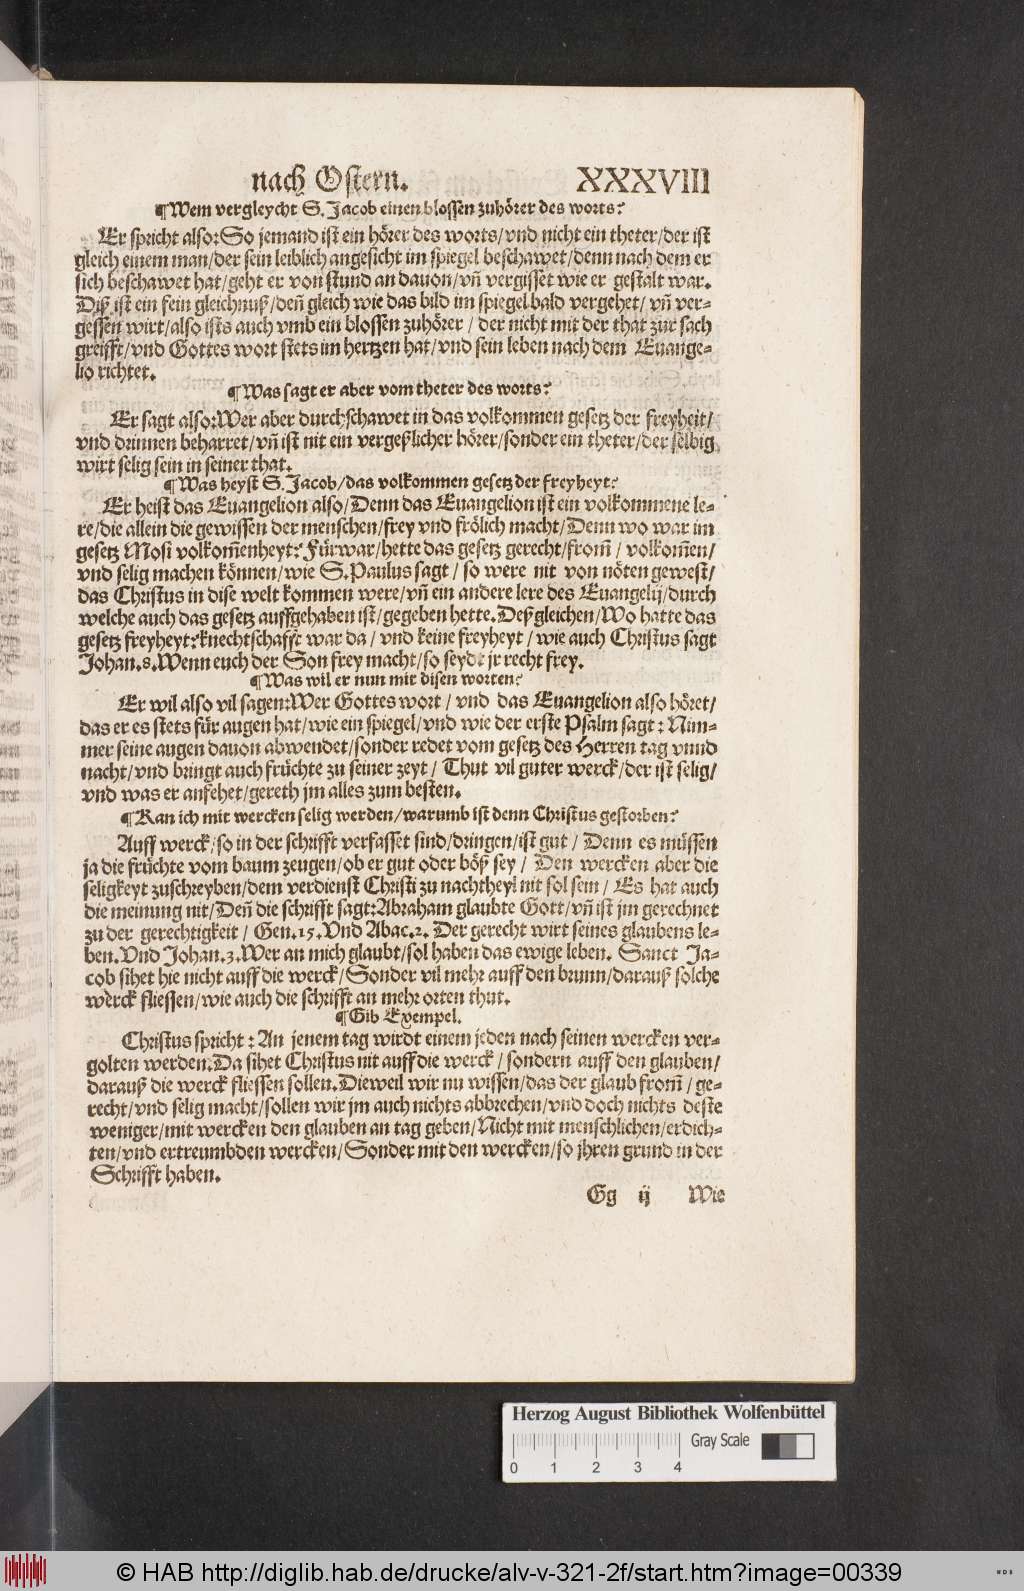 nach Ostern. XXXVIII
¶Wem vergleycht S. Jacob einen blossen zuhörer des worts?
Er spricht also: So jemand ist ein hörer des worts/vnd nicht ein theter/der ist
gleich einem man/der sein leiblich angesicht im spiegel beschawet/denn nach dem er
sich beschawet hat/geht er von stund an dauon/vn̄ vergisset wie er gestalt war.
Diß ist ein fein gleichnuß/den̄ gleich wie das bild im spiegel bald vergehet/vn̄ ver-
gessen wirt/also ists auch vmb ein blossen zuhörer / der nicht mit der that zur sach
greifft/vnd Gottes wort stets im hertzen hat/vnd sein leben nach dem Euange-
lio richtet.
¶Was sagt er aber vom theter des worts?
Er sagt also: Wer aber durchschawet in das volkommen gesetz der freyheit/
vnd drinnen beharret/vn̄ ist nit ein vergeßlicher hörer/sonder ein theter/der selbig
wirt selig sein in seiner that.
¶Was heyst S. Jacob/das volkommen gesetz der freyheyt?
Er heist das Euangelion also/Denn das Euangelion ist ein volkommene le-
re/die allein die gewissen der menschen/frey vnd frölich macht/Denn wo war im
gesetz Mosi volkom̄enheyt? Fürwar/hette das gesetz gerecht/from̄ / volkom̄en/
vnd selig machen können/wie S. Paulus sagt / so were nit von nöten gewest/
das Christus in dise welt kommen were/vn̄ ein andere lere des Euangelij/durch
welche auch das gesetz auffgehaben ist/gegeben hette. Deßgleichen/Wo hatte das
gesetz freyheyt? knechtschafft war da / vnd keine freyheyt / wie auch Christus sagt
Johan.8. Wenn euch der Son frey macht/so seydt jr recht frey.
¶Was wil er nun mit disen worten?
Er wil also vil sagen: Wer Gottes wort / vnd das Euangelion also höret/
das er es stets für augen hat/wie ein spiegel/vnd wie der erste Psalm sagt: Nim-
mer seine augen dauon abwendet/sonder redet vom gesetz des Herren tag vnnd
nacht/vnd bringt auch früchte zu seiner zeyt / Thut vil guter werck/der ist selig/
vnd was er anfehet/gereth jm alles zum besten.
¶Kan ich mit wercken selig werden/warumb ist denn Christus gestorben?
Auff werck/so in der schrifft verfasset sind/dringen/ist gut / Denn es müssen
ja die früchte vom baum zeugen/ob er gut oder böß sey / Den wercken aber die
seligkeyt zuschreyben/dem verdienst Christi zu nachtheyl nit sol sein / Es hat auch
die meinung nit/Den̄ die schrifft sagt: Abraham glaubte Gott/vn̄ ist jm gerechnet
zu der gerechtigkeit / Gen.15. Vnd Abac.2. Der gerecht wirt seines glaubens le-
ben. Vnd Johan.3. Wer an mich glaubt/sol haben das ewige leben. Sanct Ja-
cob sihet hie nicht auff die werck/Sonder vil mehr auff den brunn/darauß solche
werck fliessen/wie auch die schrifft an mehr orten thut.
¶Gib Exempel.
Christus spricht: An jenem tag wirdt einem jeden nach seinen wercken ver-
golten werden. Da sihet Christus nit auff die werck / sondern auff den glauben/
darauß die werck fliessen sollen. Dieweil wir nu wissen/das der glaub from̄ / ge-
recht/vnd selig macht/sollen wir jm auch nichts abbrechen/vnd doch nichts deste
weniger/mit wercken den glauben an tag geben/Nicht mit menschlichen/erdich-
ten/vnd ertreumbden wercken/Sonder mit den wercken/so jhren grund in der
Schrifft haben.
Gg ij Wie
Herzog August Bibliothek Wolfenbüttel
Gray Scale
0 1 2 3 4
© HAB http://diglib.hab.de/drucke/alv-v-321-2f/start.htm?image=00339